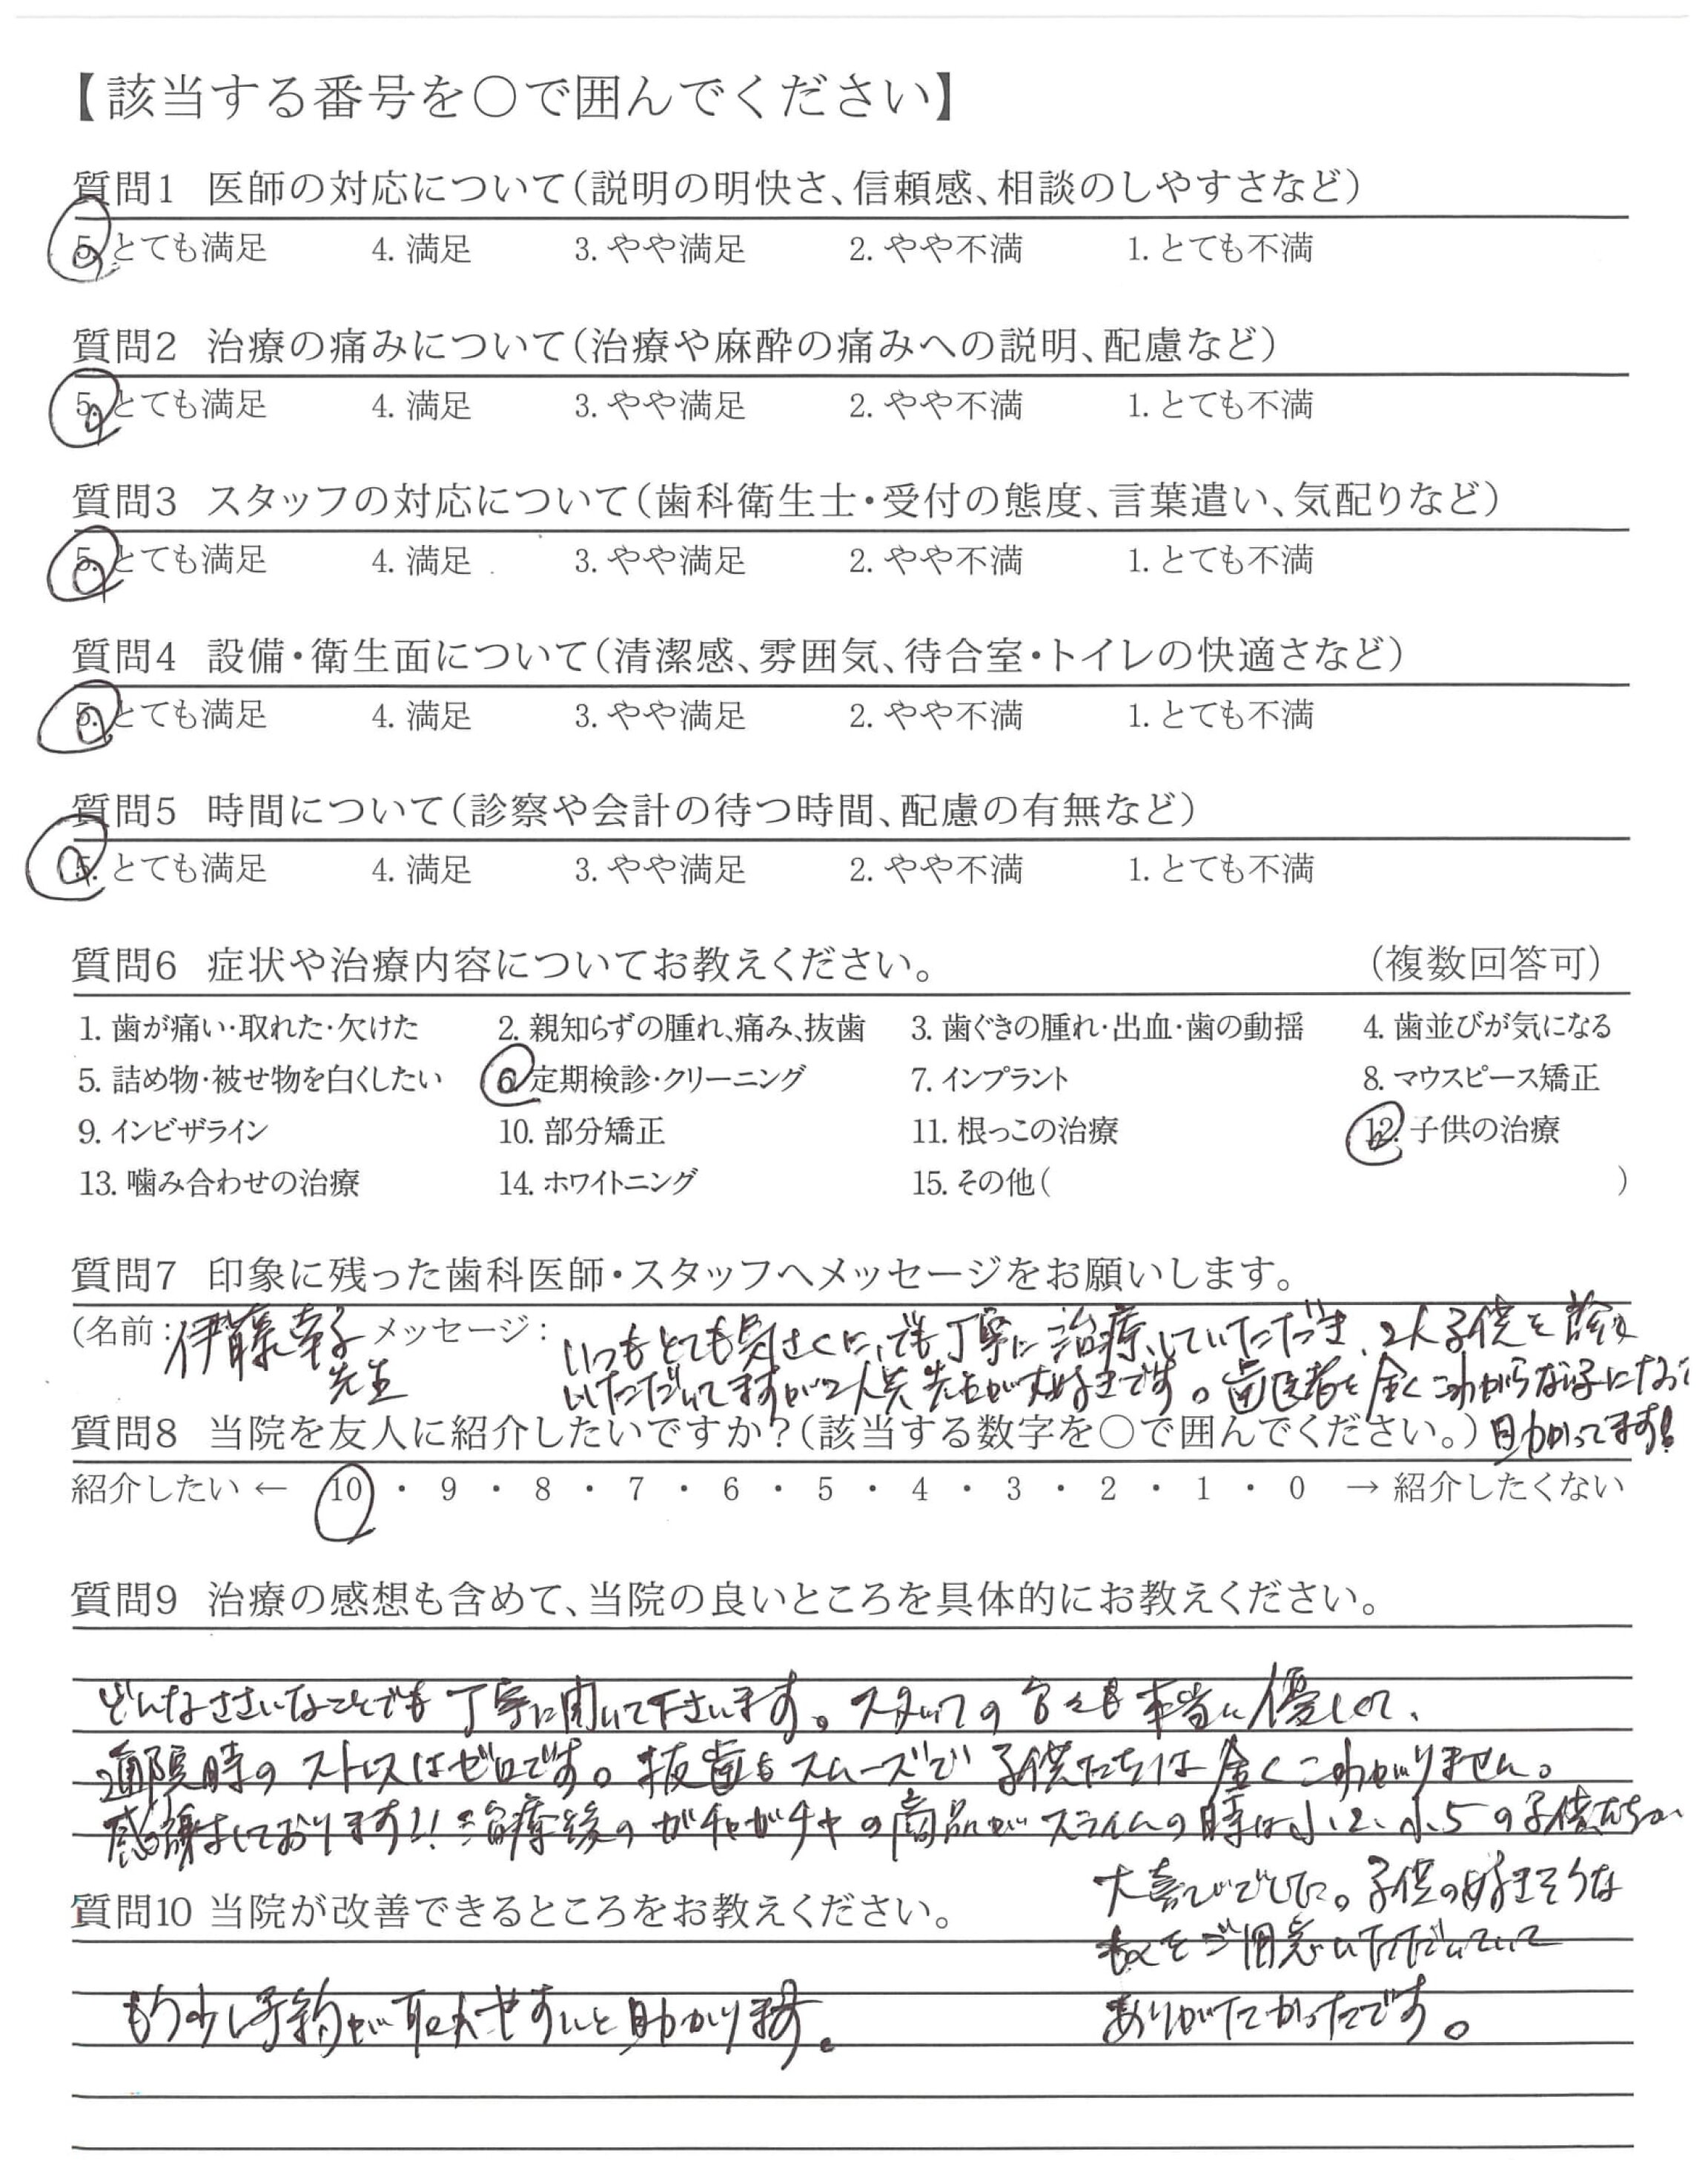 【該当する番号を○で囲んでください】
質問1 医師の対応について(説明の明快さ、信頼感、相談のしやすさなど)
5. とても満足 4. 満足 3. やや満足 2. やや不満 1. とても不満
質問2 治療の痛みについて(治療や麻酔の痛みへの説明、配慮など)
5. とても満足 4. 満足 3. やや満足 2. やや不満 1. とても不満
質問3 スタッフの対応について(歯科衛生士・受付の態度、言葉遣い、気配りなど)
5. とても満足 4. 満足 3. やや満足 2. やや不満 1. とても不満
質問4 設備・衛生面について(清潔感、雰囲気、待合室・トイレの快適さなど)
5. とても満足 4. 満足 3. やや満足 2. やや不満 1. とても不満
質問5 時間について(診察や会計の待つ時間、配慮の有無など)
5. とても満足 4. 満足 3. やや満足 2. やや不満 1. とても不満
質問6 症状や治療内容についてお教えください。 (複数回答可)
1. 歯が痛い・取れた・欠けた 2. 親知らずの腫れ、痛み、抜歯 3. 歯ぐきの腫れ・出血・歯の動揺 4. 歯並びが気になる
5. 詰め物・被せ物を白くしたい 6. 定期検診・クリーニング 7. インプラント 8. マウスピース矯正
9. インビザライン 10. 部分矯正 11. 根っこの治療 12. 子供の治療
13. 噛み合わせの治療 14. ホワイトニング 15. その他( )
質問7 印象に残った歯科医師・スタッフへメッセージをお願いします。
(名前: 伊藤幸子 メッセージ: いつもとても気さくに、でも丁寧に治療していただき、2人子供を診て
先生 いただいてますが2人共先生が大好きです。歯医者を全くこわがらない子になって
質問8 当院を友人に紹介したいですか?(該当する数字を○で囲んでください。) 助かってます!
紹介したい ← 10 ・ 9 ・ 8 ・ 7 ・ 6 ・ 5 ・ 4 ・ 3 ・ 2 ・ 1 ・ 0 → 紹介したくない
質問9 治療の感想も含めて、当院の良いところを具体的にお教えください。
どんなささいなことでも丁寧に聞いて下さいます。スタッフの方々も本当に優しくて、
通院時のストレスはゼロです。抜歯もスムーズで子供たちは全くこわがりません。
感謝しております!! 治療後のガチャガチャの商品がスライムの時は小2、小5の子供たちが
大喜びでした。子供の好きそうな
質問10 当院が改善できるところをお教えください。
ものをご用意いただいていて
もう少し予約が取れやすいと助かります。
ありがたかったです。